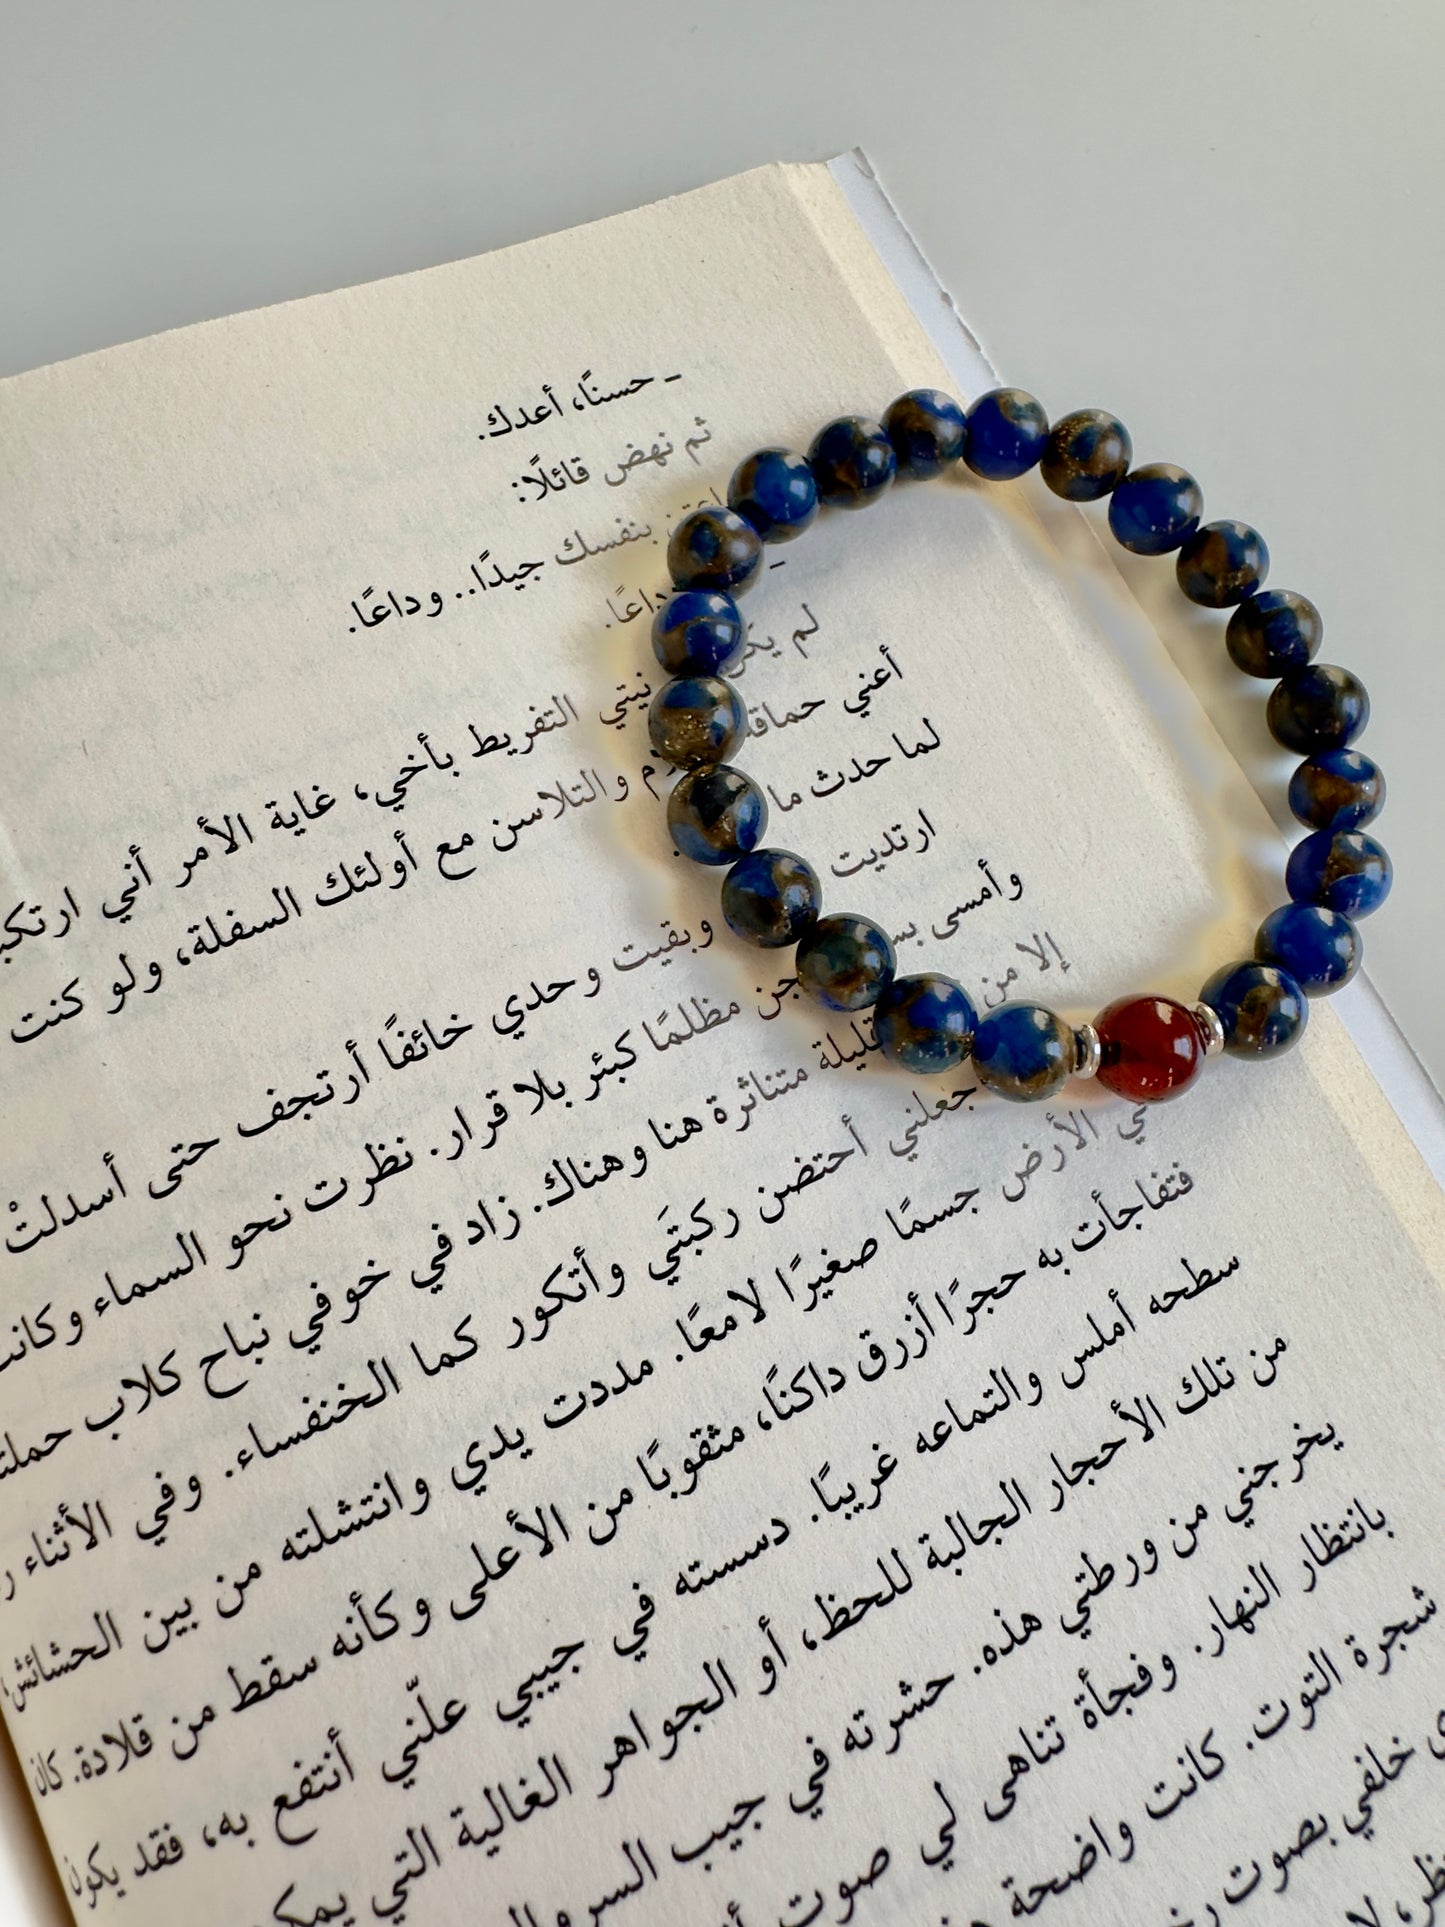 ـ حسنًا، أعدك.
ثم نهض قائلًا:
بنفسك جيدًا.. وداعًا.
لم نيتي التفريط بأخي، غاية الأمر أني
أعني حماقة والتلاسن مع أولئك السفلة، ولو كنت
لما حدث ما
ارتديت وبقيت وحدي خائفًا أرتجف حتى أسدلتْ
وأمسى مظلمًا كبئر بلا قرار. نظرت نحو السماء
إلا من قليلة متناثرة هنا وهناك. زاد في خوفي نباح كلاب
جعلني أحتضن ركبتَي وأتكور كما الخنفساء. وفي الأثناء
الأرض جسمًا صغيرًا لامعًا. مددت يدي وانتشلته من بين الحشائش،
فتفاجأت به حجرًا أزرق داكنًا، مثقوبًا من الأعلى وكأنه سقط من قلادة. كان
سطحه أملس والتماعه غريبًا. دسسته في جيبي علّني أنتفع به، فقد يكون
من تلك الأحجار الجالبة للحظ، أو الجواهر الغالية التي
يخرجني من ورطتي هذه. حشرته في جيب
بانتظار النهار. وفجأة تناهى لي صوت
شجرة التوت. كانت واضحة
خلفي بصوت